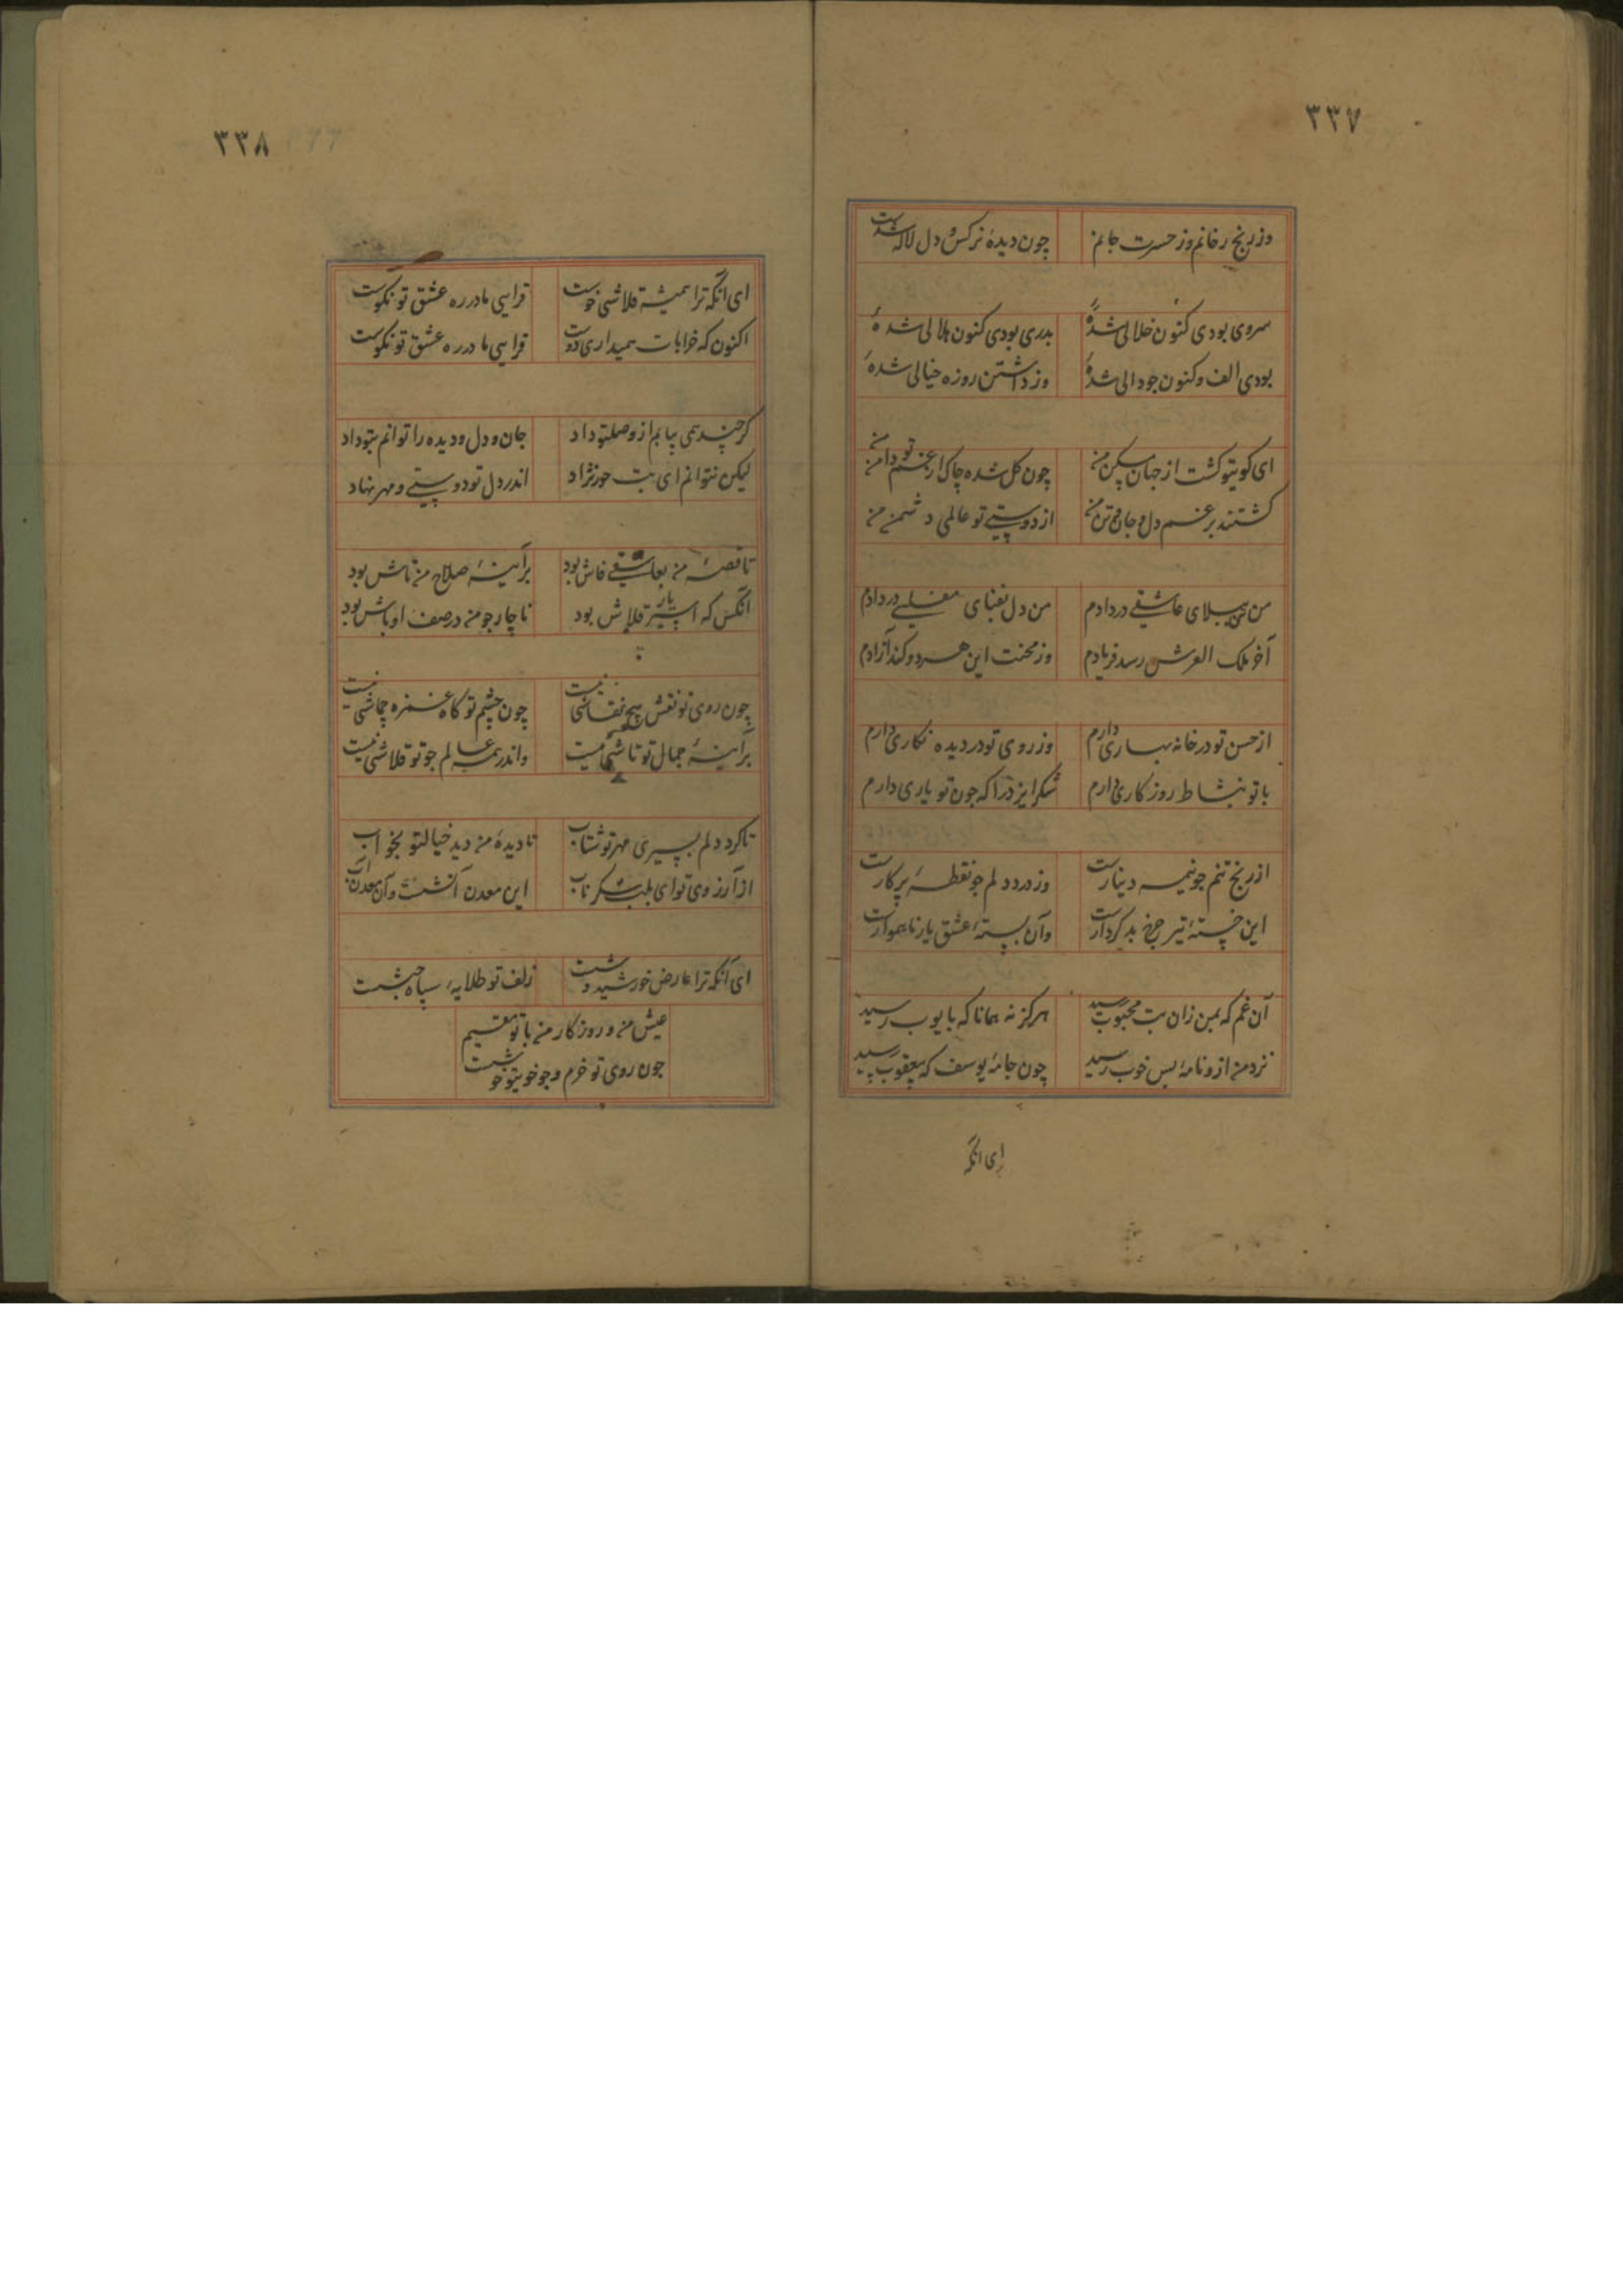 ۳۳۷
وز رنج رخانم وز حسرت جانم چون دیدهٔ نرکس و دل لاله شدست
سروی بودی کنون خلالی شدهٔ بدری بودی کنون هلالی شدهٔ
بودی الف و کنون جو دالی شدهٔ وز داشتن روزه خیالی شدهٔ
ای کویتو کشت از جهان مسکن من چون کل شده چاک از غم تو دامن من
کشتند برغم دل و جان و تن من از دوستی تو عالمی دشمن من
من تن ببلای عاشقی در دادم من دل بعنای مفلسی در دادم
آخر ملک العرش رسد فریادم وز محنت این هر دو کند آزادم
از حسن تو در خانه بهاری دارم وز روی تو در دیده نکاری دارم
با تو بنشاط روزکاری دارم شکر ایزد را که جون تو یاری دارم
از رنج تنم جو نیمه دینارست وز درد دلم جو نقطهٔ پرکارست
این خستهٔ تیر چرخ بد کردارست وآن بستهٔ عشق یار ناهموارست
آن غم که بمن زان بت محبوب رسید هرکز نه همانا که بایوب رسید
نزد من ازو نامهٔ بس خوب رسید چون جامهٔ یوسف که بیعقوب رسید
ای انکه
۳۳۸
ای انکه ترا همیشه قلاشی خوست قراسی ما در ره عشق تو نکوست
اکنون که خرابات همیداری دوست قراسی ما در ره عشق تو نکوست
کرچند همی بیابم از وصلتو داد جان و دل و دیده را توانم بتو داد
لیکن نتوانم ای بت حورنژاد اندر دل تو دوستی و مهر نهاد
تا قصهٔ من بعاشقی فاش بود بر آینهٔ صلاح من تاش بود
انکس که اسیر یار قلاش بود ناچار جو من در صف اوباش بود
چون روی تو نقش هیچ نقاشی نیست چون چشم تو کاه غمزه جماشی نیست
بر آینهٔ جمال تو تاشی نیست واندر همه عالم جو تو قلاشی نیست
تا کرد دلم بسیری مهر تو شتاب نادیدهٔ من دید خیالتو بخواب
از آرزوی تو ای بلب شکر ناب این معدن آتشست و آن معدن آب
ای آنکه ترا عارض خورشید وشست زلف تو طلایهٔ سپاه حبشست
عیش من و روزکار من با تو مقیم
جون روی تو خرم و جو خویتو خوشست